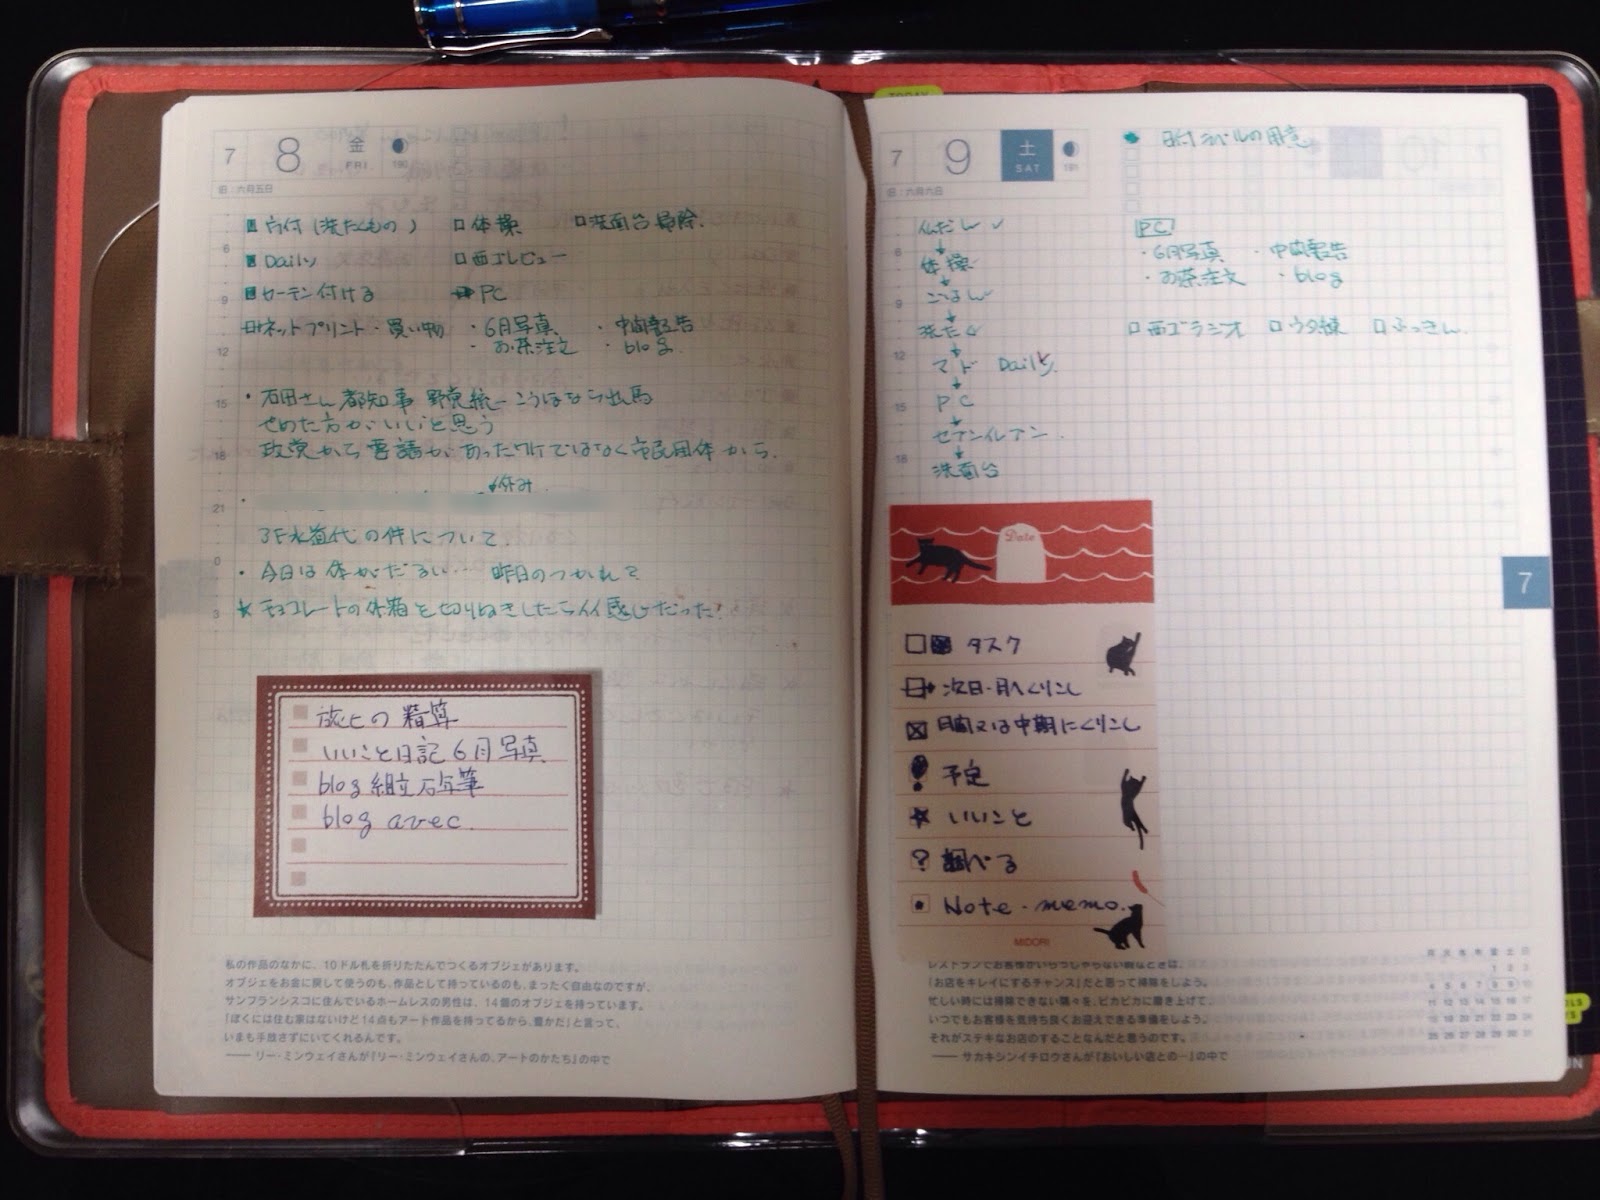 7 8 金 FRI 190
旧:六月五日
片付(洗たくもの) 体操 洗面台掃除
6
Daily 西ゴレビュー
9
カーテン付ける PC
ネットプリント・買い物 ・6月写真 ・中間報告
・お茶注文 ・blog
12
・石田さん都知事 野党統一こうほなら出馬
15
せめた方がいいと思う
政党から要請があったワケではなく市民団体から.
18
休み
21
3F水道代の件について.
0
・今日は体がだるい… 昨日のつかれ?
3
★チョコレートの外箱を切りぬきしたらイイ感じだった!
の精算
いいこと日記6月写真
blog 組立
blog avec.
私の作品のなかに、10ドル札を折りたたんでつくるオブジェがあります。
オブジェをお金に戻して使うのも、作品として持っているのも、まったく自由なのですが、
サンフランシスコに住んでいるホームレスの男性は、14個のオブジェを持っています。
「ぼくには住む家はないけど14点もアート作品を持ってるから、豊かだ」と言って、
いまも手放さずにいてくれるんです。
——リー・ミンウェイさんが『リー・ミンウェイさんの、アートのかたち』の中で
TODAY
7 9 土 SAT 191
旧:六月六日
ラベルの用意
6
体操
9
ごはん
洗たく
12
マド Daily
15
PC
セブンイレブン
18
洗面台
PC
・6月写真 ・中間報告
・お茶注文 ・blog
西ゴラジオ ウタ練 ふっきん.
Date
タスク
次日・月へくりこし
月間又は中期にくりこし
予定
いいこと
調べる
Note・memo.
MIDORI
7
レストランでお客様がいらっしゃらない時などは、
「お店をキレイにするチャンス」だと思って掃除をしよう。
忙しい時には掃除できない隅々を、ピカピカに磨き上げて、
いつでもお客様を気持ち良くお迎えできる準備をしよう。
それがステキなお店のすることなんだと思うのです。
——サカキシンイチロウさんが『おいしい店との―』の中で
月 火 水 木 金 土 日
1 2 3
4 5 6 7 8 9 10
11 12 13 14 15 16 17
18 19 20 21 22 23 24
25 26 27 28 29 30 31